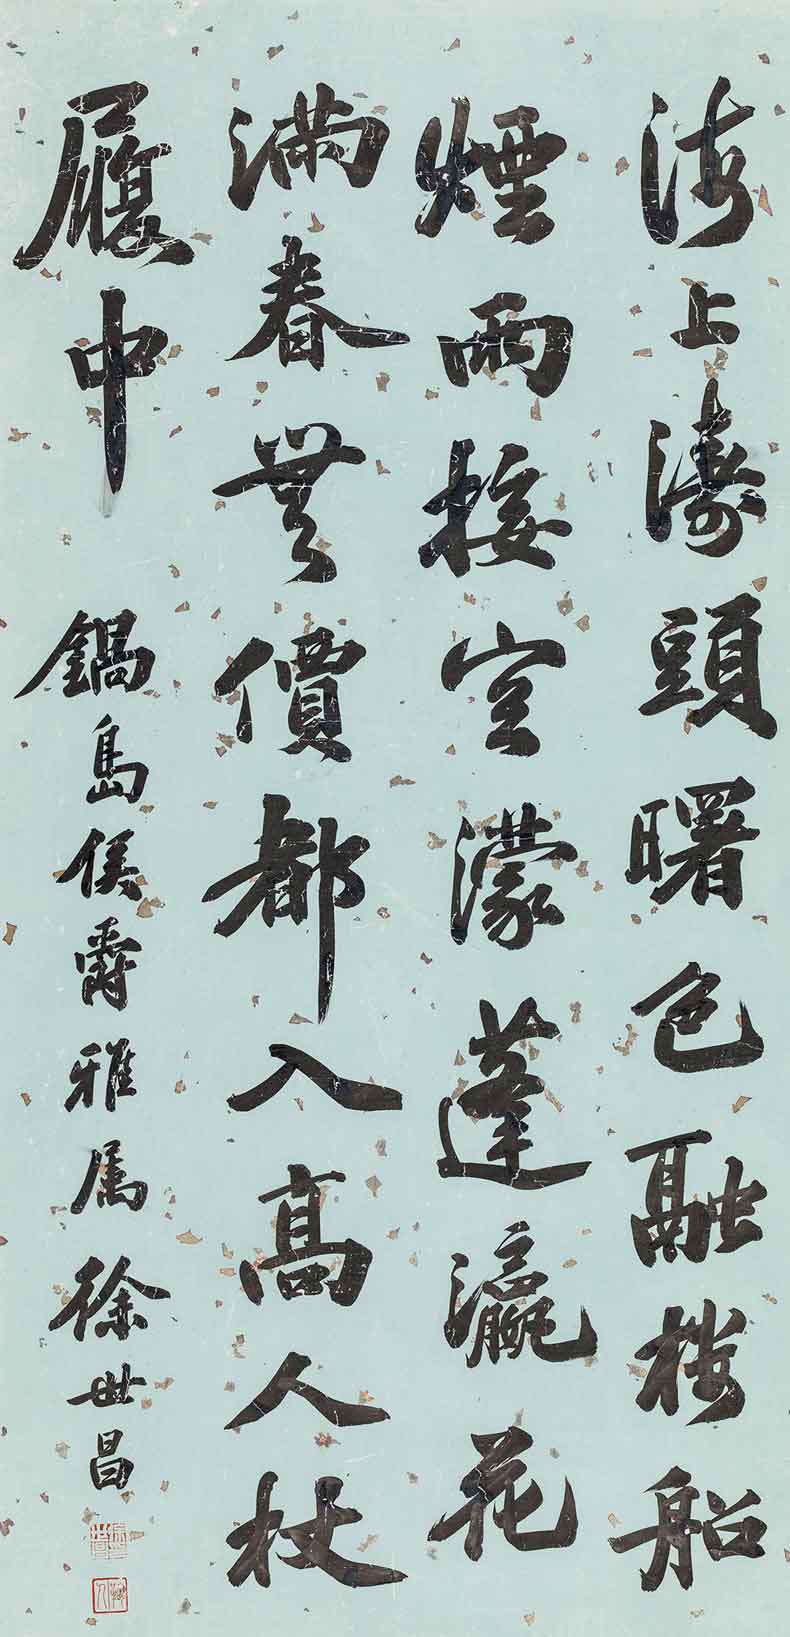 海上濤頭曙色融樓船
煙雨接空濛蓬瀛花
滿春無價都入高人杖
履中 鍋島侯爵雅属 徐世昌